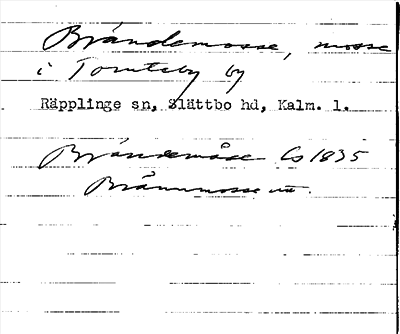 Brändemosse, mosse
i Tomteby by
Räpplinge sn, Slättbo hd, Kalm. l.
Brändemåse Co 1835
Brännmosse